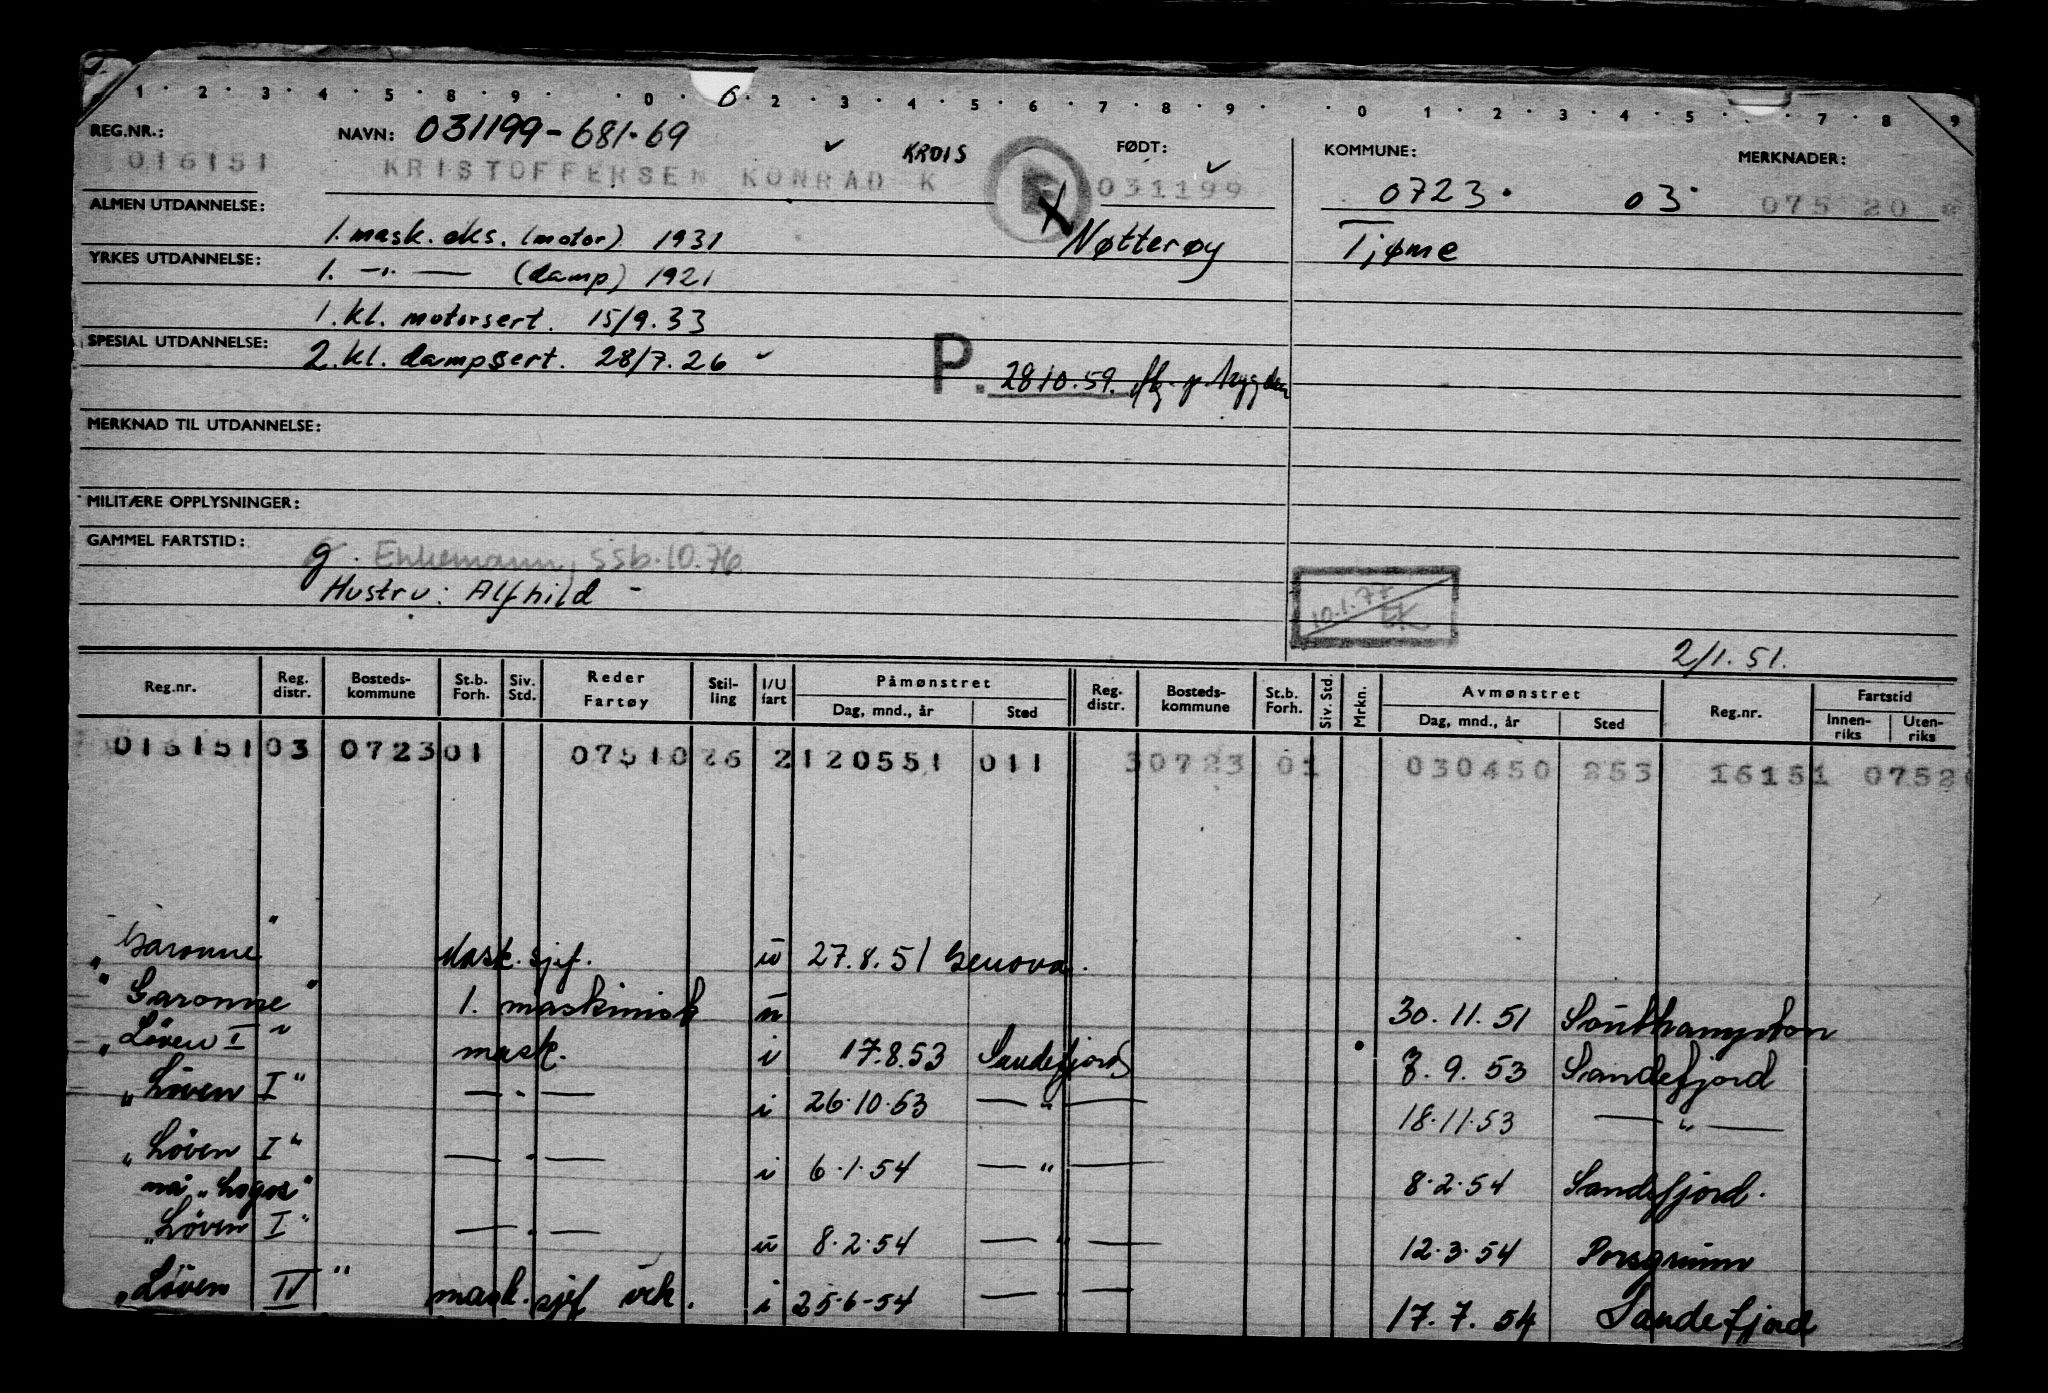 1 · 2 · 3 · 4 · 5 · 8 · 9 · · 0 · 6 2 · 3 · 4 · 5 · 6 · 7 · 8 · 9 · 0 · 1 · 2 · 3 · 4 · 5 · · 7 · 8 · 9
REG.NR.: NAVN: 031199-681.69 FØDT: KOMMUNE: MERKNADER:
016151 KRISTOFFERSEN KONRAD K KROIS 031199 0723. 03 075 20
ALMEN UTDANNELSE: 1. mask. eks. (motor) 1931 Nøtterøy Tjøme
YRKES UTDANNELSE: 1. —"— (damp) 1921
1. kl. motorsert. 15/9.33
SPESIAL UTDANNELSE: 2. kl. dampsert. 28/7.26 P. 2810.59.
MERKNAD TIL UTDANNELSE:
MILITÆRE OPPLYSNINGER:
GAMMEL FARTSTID: g. Enkemann, ssb.10.76
Hustru: Alfhild - 10.1.77 EK
2/1.51.
Reg.nr. Reg. distr. Bosteds-kommune St.b. Forh. Siv. Std. Reder Fartøy Stil-ling I/U fart Påmønstret Dag, mnd., år Sted Reg. distr. Bosteds-kommune St.b. Forh. Siv. Std. Mrkn. Avmønstret Dag, mnd., år Sted Reg.nr. Fartstid Innen-riks Uten-riks
016151 03 0723 01 07510 26 2 120551 011 30723 01 030450 253 16151 0752
"Garonne" Mask. sjef. u 27.8.51 Genova.
"Garonne" 1. maskinist u 30.11.51 Southampton
"Løven I" mask. i 17.8.53 Sandefjord 3.9.53 Sandefjord
"Løven I" —"— i 26.10.53 —"— 18.11.53 —"—
"Løven I" —"— i 6.1.54 —"— 8.2.54 Sandefjord.
nå "Logos"
"Løven I" —"— u 8.2.54 —"— 12.3.54 Porsgrunn
"Løven IV" mask. sjef vik. i 25.6-54 —"— 17.7.54 Sandefjord